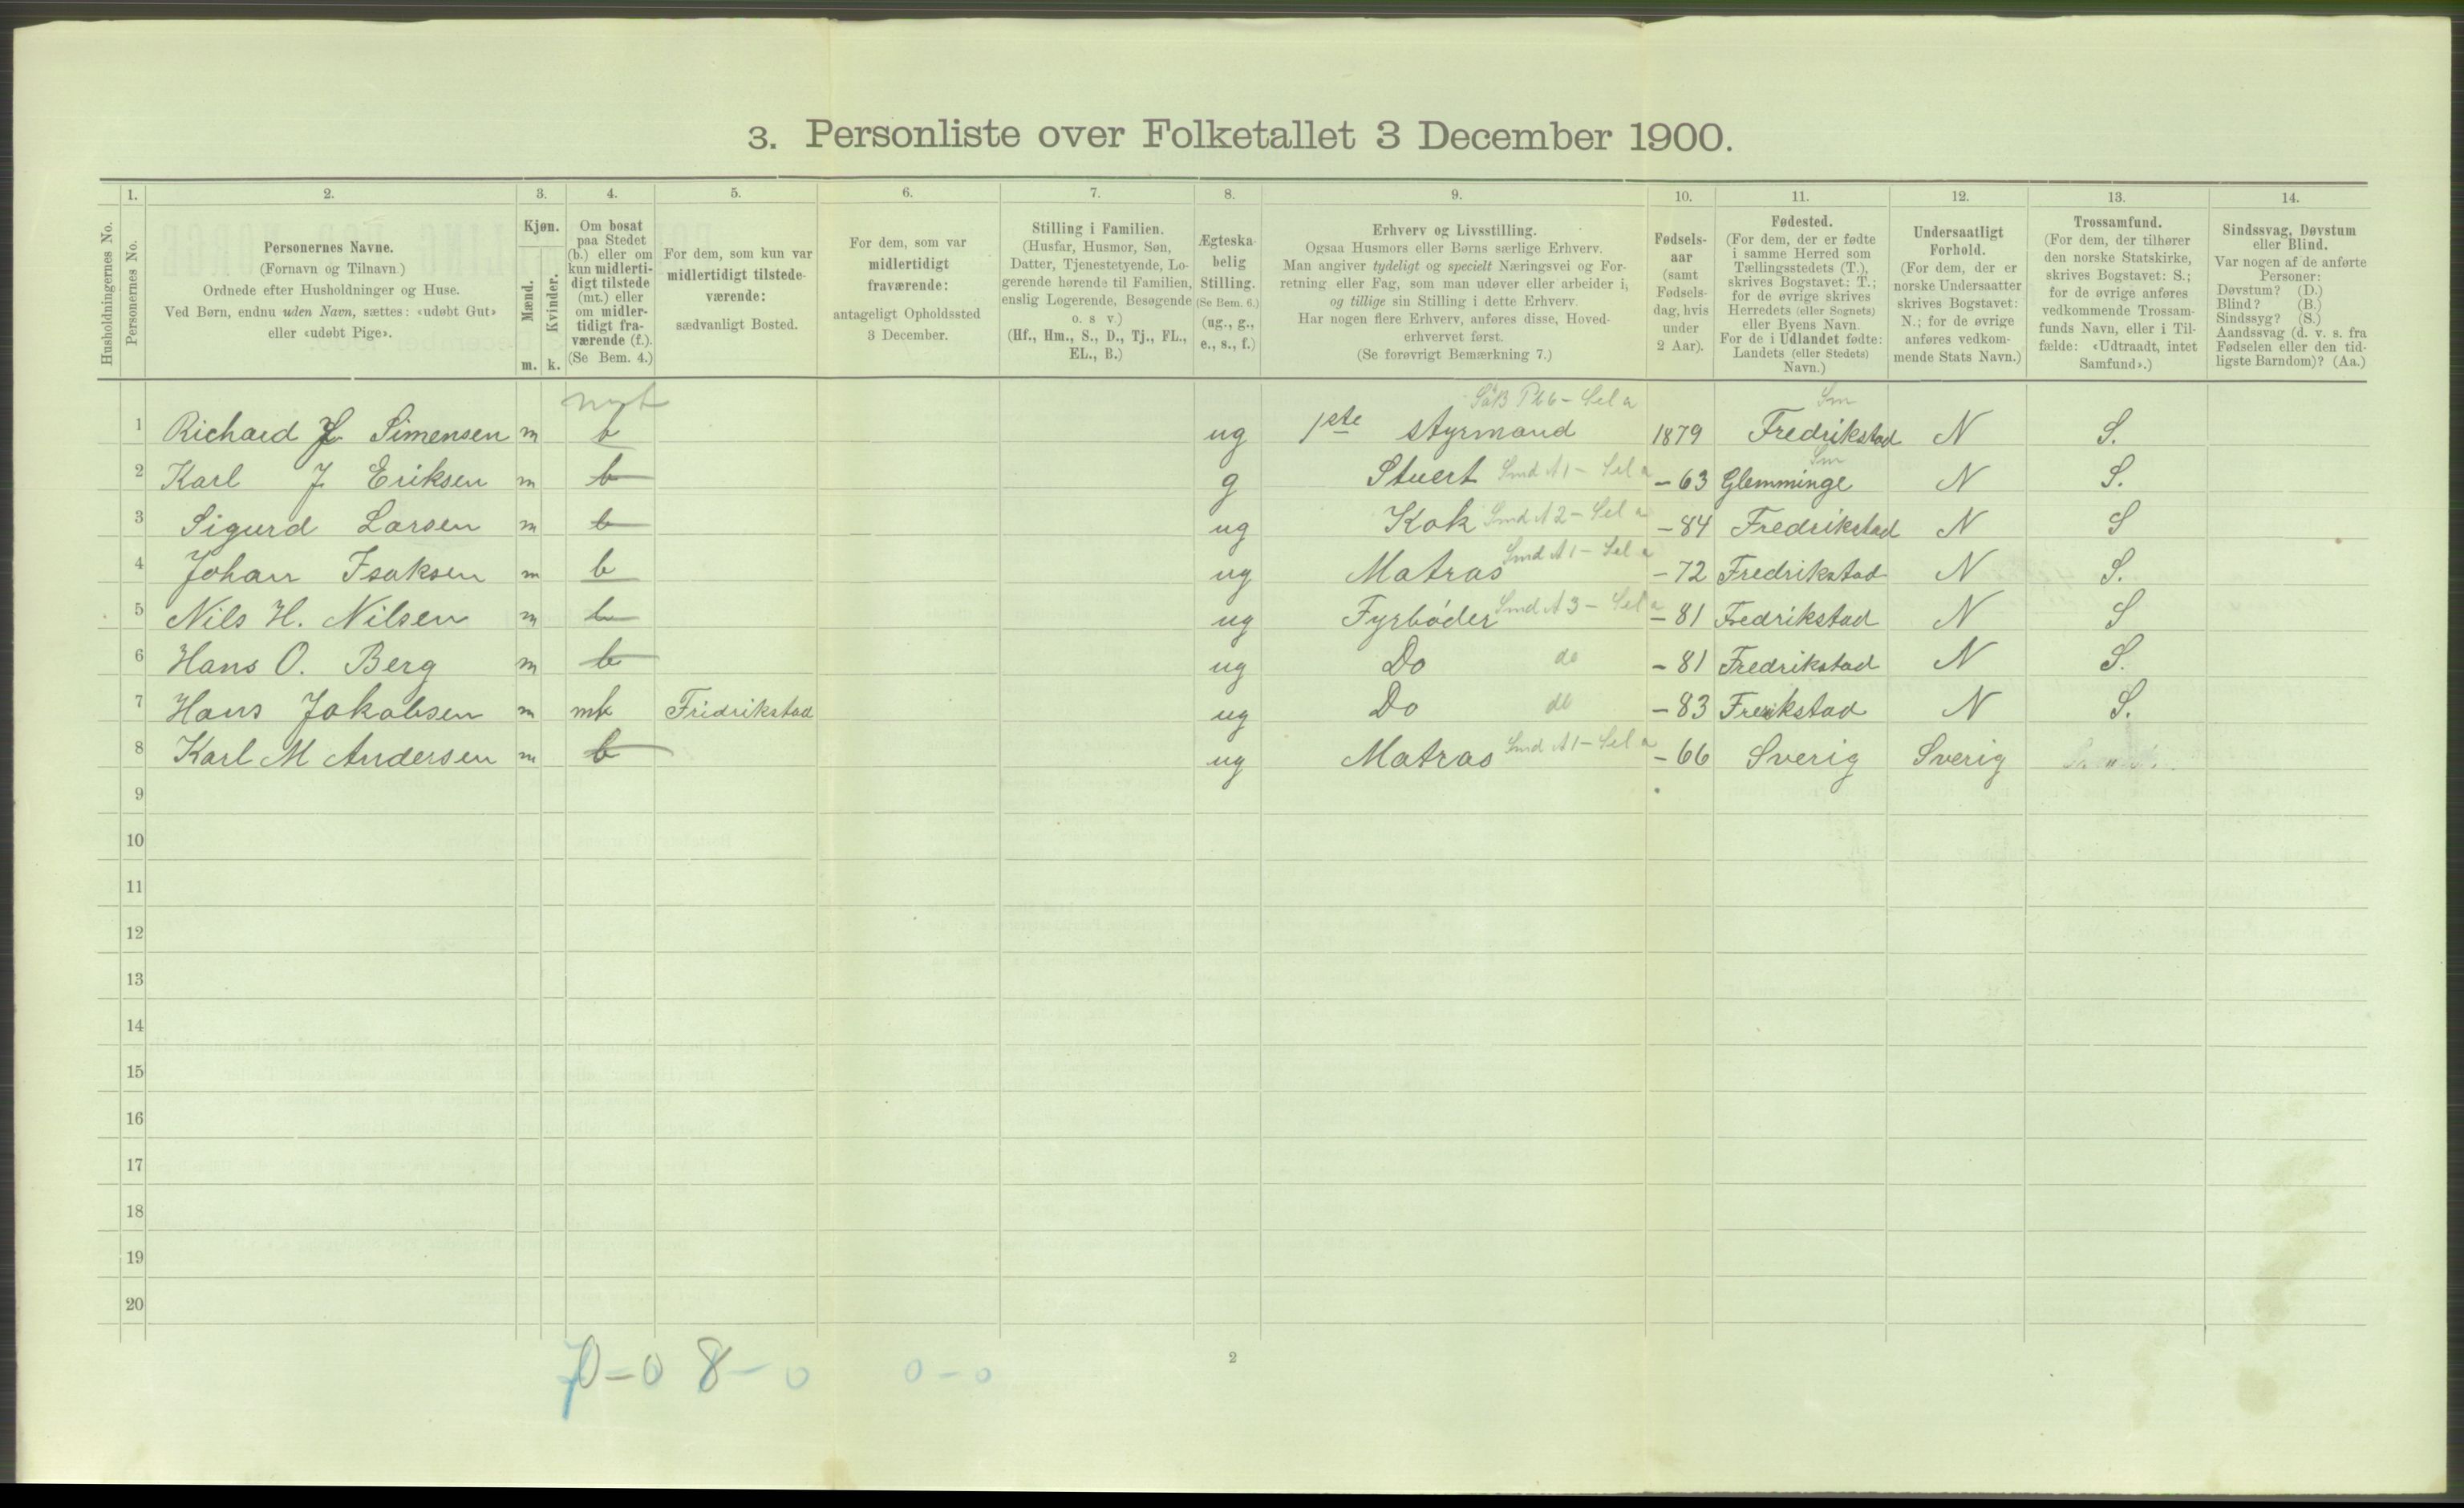 3. Personliste over Folketallet 3 December 1900.
1. 2. 3. 4. 5. 6. 7. 8. 9. 10. 11. 12. 13. 14.
Husholdningernes No.
Personernes No.
Personernes Navne.
(Fornavn og Tilnavn.)
Ordnede efter Husholdninger og Huse.
Ved Børn, endnu uden Navn, sættes: «udøbt Gut»
eller «udøbt Pige».
Kjøn.
Mænd.
Kvinder.
m. k.
Om bosat
paa Stedet
(b.) eller om
kun midlerti-
digt tilstede
(mt.) eller
om midler-
tidigt fra-
værende (f.).
(Se Bem. 4.)
For dem, som kun var
midlertidigt tilstede-
værende:
sædvanligt Bosted.
For dem, som var
midlertidigt
fraværende:
antageligt Opholdssted
3 December.
Stilling i Familien.
(Husfar, Husmor, Søn,
Datter, Tjenestetyende, Lo-
gerende hørende til Familien,
enslig Logerende, Besøgende
o. s v.)
(Hf., Hm., S., D., Tj., FL.,
EL., B.)
Ægteska-
belig
Stilling.
(Se Bem. 6.)
(ug., g.,
e., s., f.)
Erhverv og Livsstilling.
Ogsaa Husmors eller Børns særlige Erhverv.
Man angiver tydeligt og specielt Næringsvei og For-
retning eller Fag, som man udøver eller arbeider i,
og tillige sin Stilling i dette Erhverv.
Har nogen flere Erhverv, anføres disse, Hoved-
erhvervet først.
(Se forøvrigt Bemærkning 7.)
Fødsels-
aar
(samt
Fødsels-
dag, hvis
under
2 Aar).
Fødested.
(For dem, der er fødte
i samme Herred som
Tællingsstedets (T.),
skrives Bogstavet: T.;
for de øvrige skrives
Herredets (eller Sognets)
eller Byens Navn.
For de i Udlandet fødte:
Landets (eller Stedets)
Navn.)
Undersaatligt
Forhold.
(For dem, der er
norske Undersaatter
skrives Bogstavet:
N.; for de øvrige
anføres vedkom-
mende Stats Navn.)
Trossamfund.
(For dem, der tilhører
den norske Statskirke,
skrives Bogstavet: S.;
for de øvrige anføres
vedkommende Trossam-
funds Navn, eller i Til-
fælde: «Udtraadt, intet
Samfund».)
Sindssvag, Døvstum
eller Blind.
Var nogen af de anførte
Personer:
Døvstum? (D.)
Blind? (B.)
Sindssyg? (S.)
Aandssvag (d. v. s. fra
Fødselen eller den tid-
ligste Barndom)? (Aa.)
Sm
1 Richard J. Simensen m b ug 1ste styrmand 1879 Fredrikstad N S.
Sm
2 Karl J Eriksen m b g Stuert Smd A1 - Sel a - 63 Glemminge N S.
3 Sigurd Larsen m b ug Kok Smd A2 - Sel a - 84 Fredrikstad N S
4 Johan Isaksen m b ug Matros Smd A1 - Sel a - 72 Fredrikstad N S.
5 Nils H. Nilsen m b ug Fyrbøder Smd A3 - Sel a - 81 Fredrikstad N S
6 Hans O. Berg m b ug Do do - 81 Fredrikstad N S.
7 Hans Jakobsen m mt Fridrikstad ug Do do - 83 Frerikstad N S.
8 Karl M Andersen m b ug Matros Smd A1 - Sel a - 66 Sverig Sverig
9
10
11
12
13
14
15
16
17
18
19
20
7 0-0 8-0 0-0
2